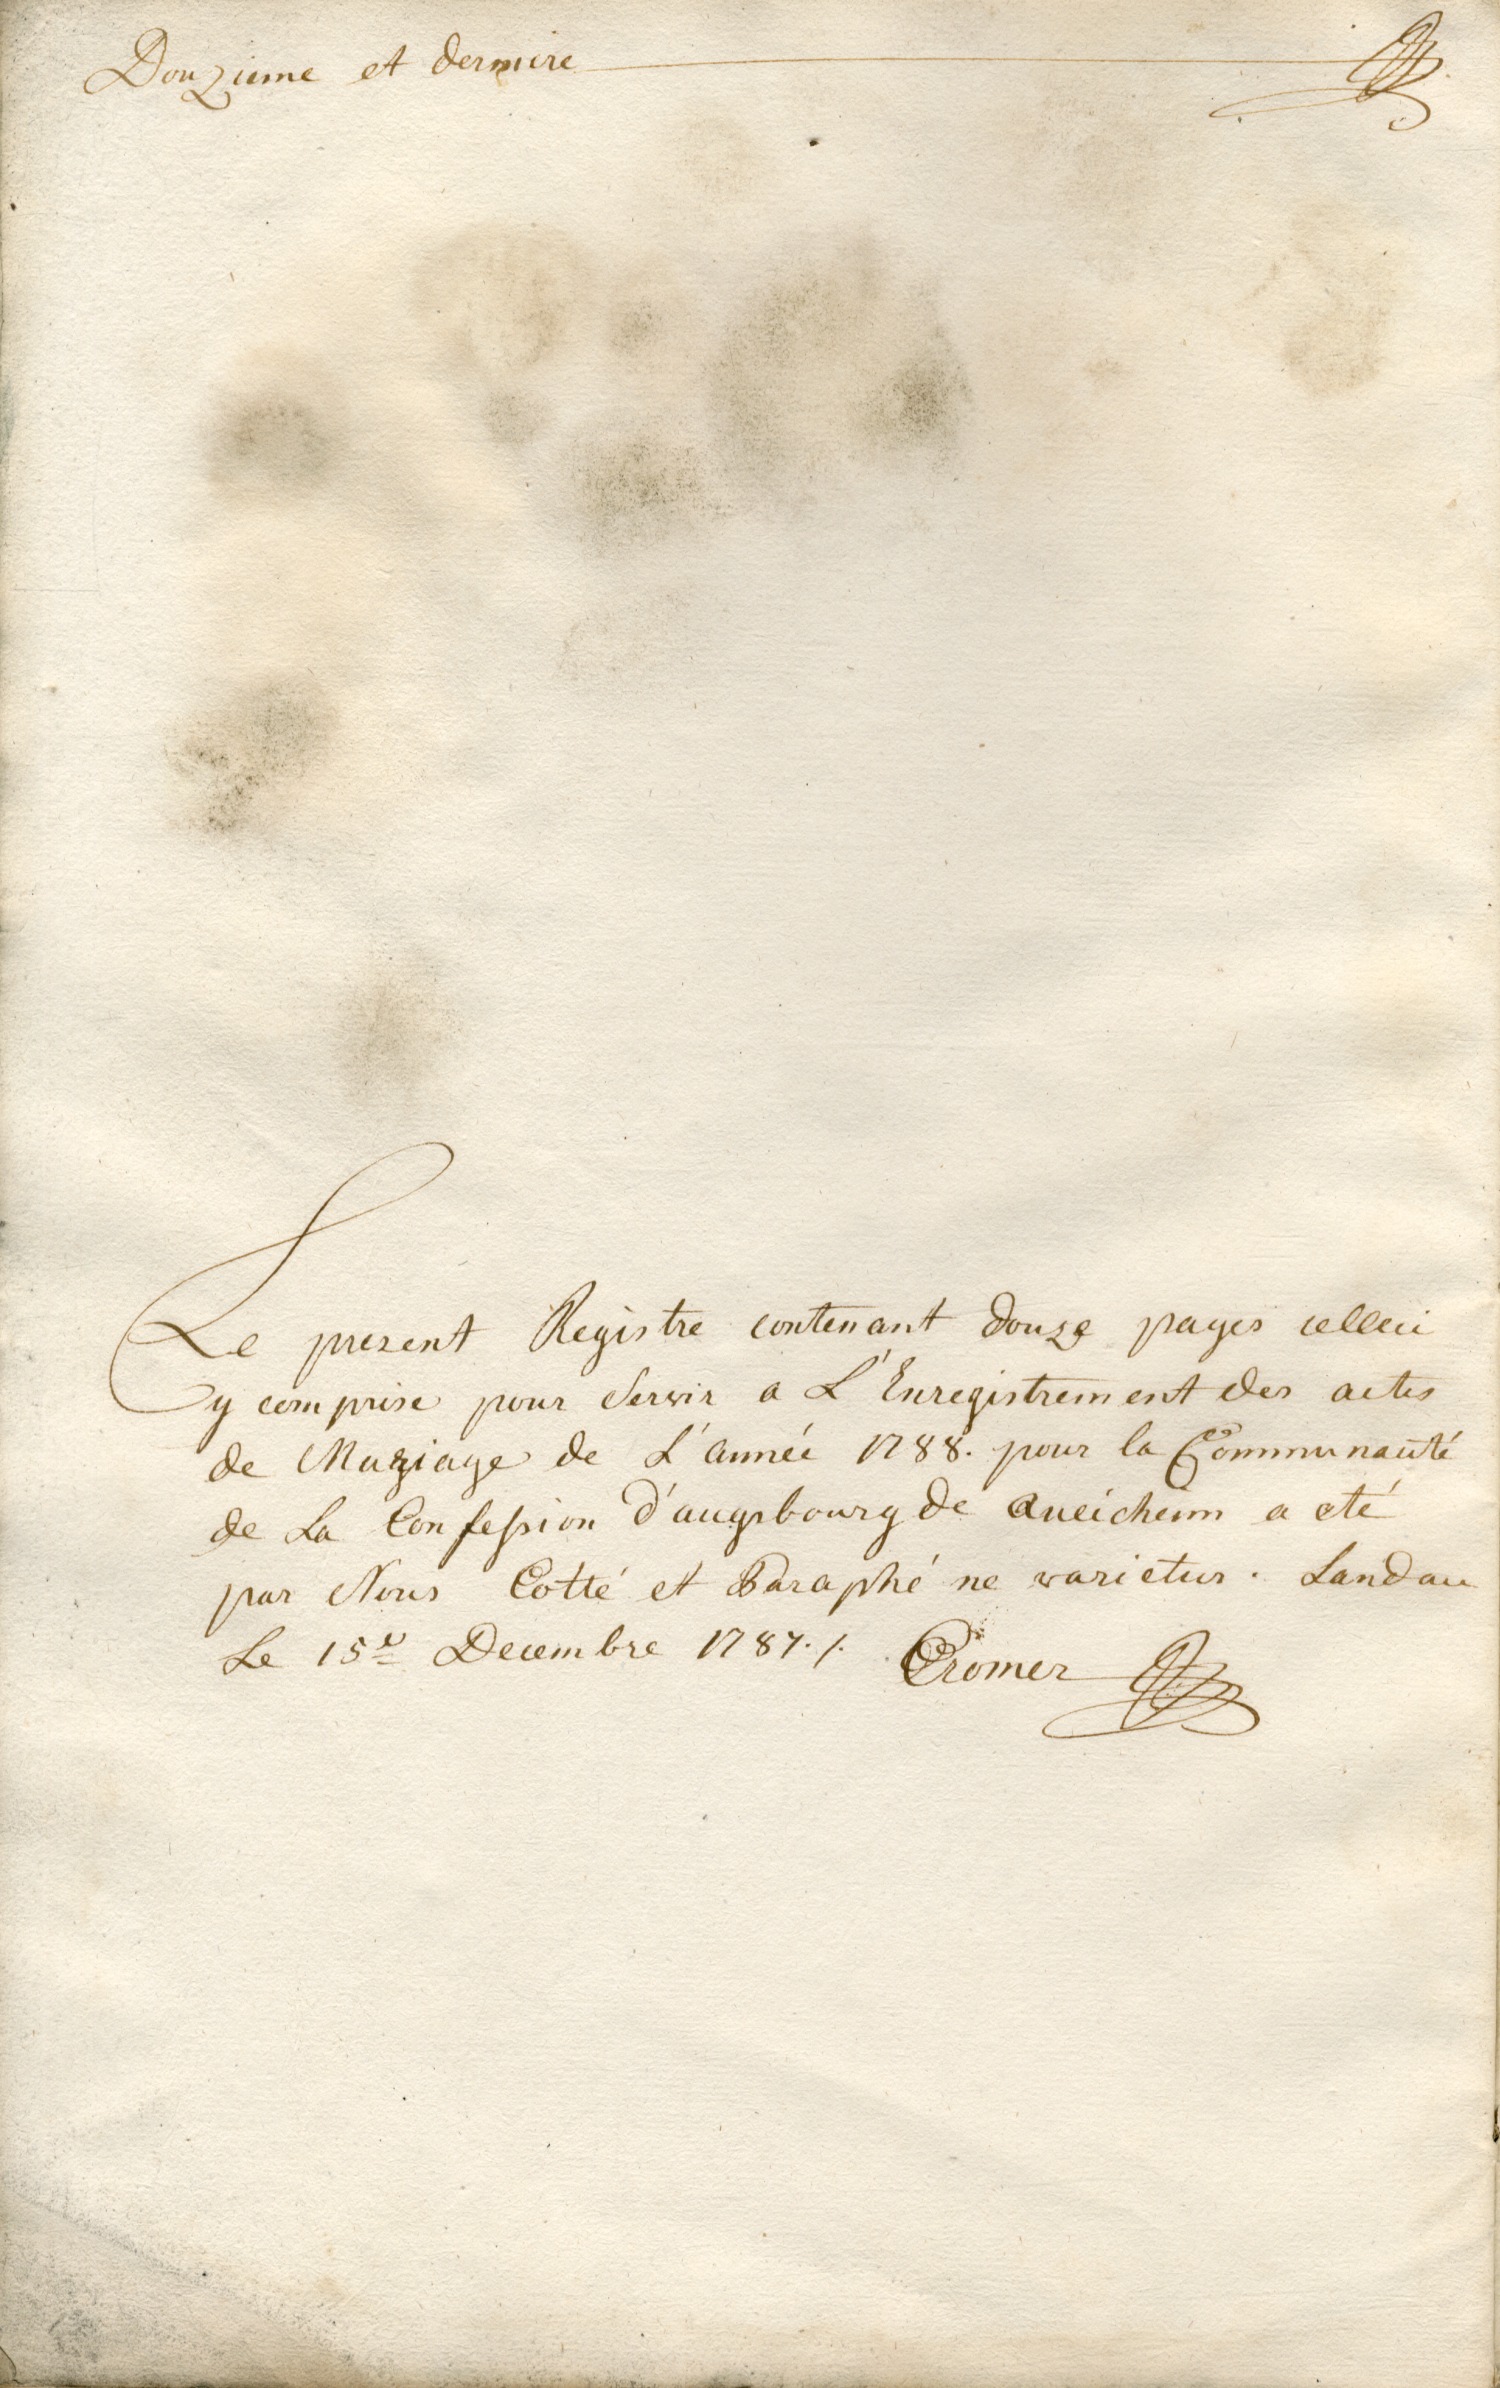 Douzieme et derniere
Le present Registre contenant douze pages celleci
y comprise pour Servir a L'Enregistrement des actes
de Mariage de L'année 1788. pour la Communauté
de La Confession d'augsbourg de Queicheim a eté
par Nous Cotté et Paraphé ne varietur. Landau
Le 15e Decembre 1787./. Cromer